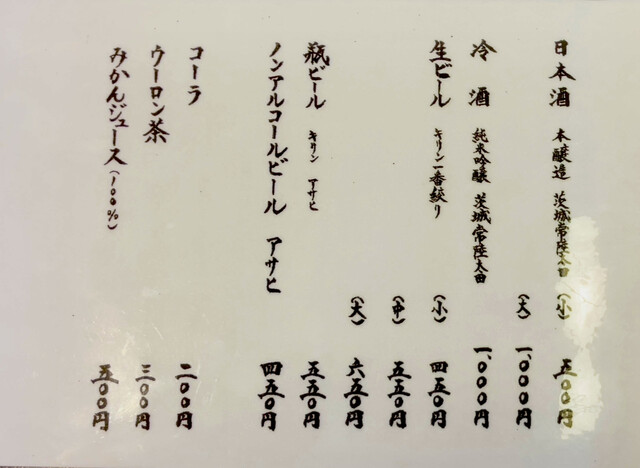 日本酒 本醸造 茨城常陸太田 (小) 五〇〇円
(大) 一、〇〇〇円
冷酒 純米吟醸 茨城常陸太田 一、〇〇〇円
生ビール キリン一番絞り (小) 四五〇円
(中) 五五〇円
(大) 六五〇円
瓶ビール キリン アサヒ 五五〇円
ノンアルコールビール アサヒ 四五〇円
コーラ 二〇〇円
ウーロン茶 三〇〇円
みかんジュース(100%) 五〇〇円